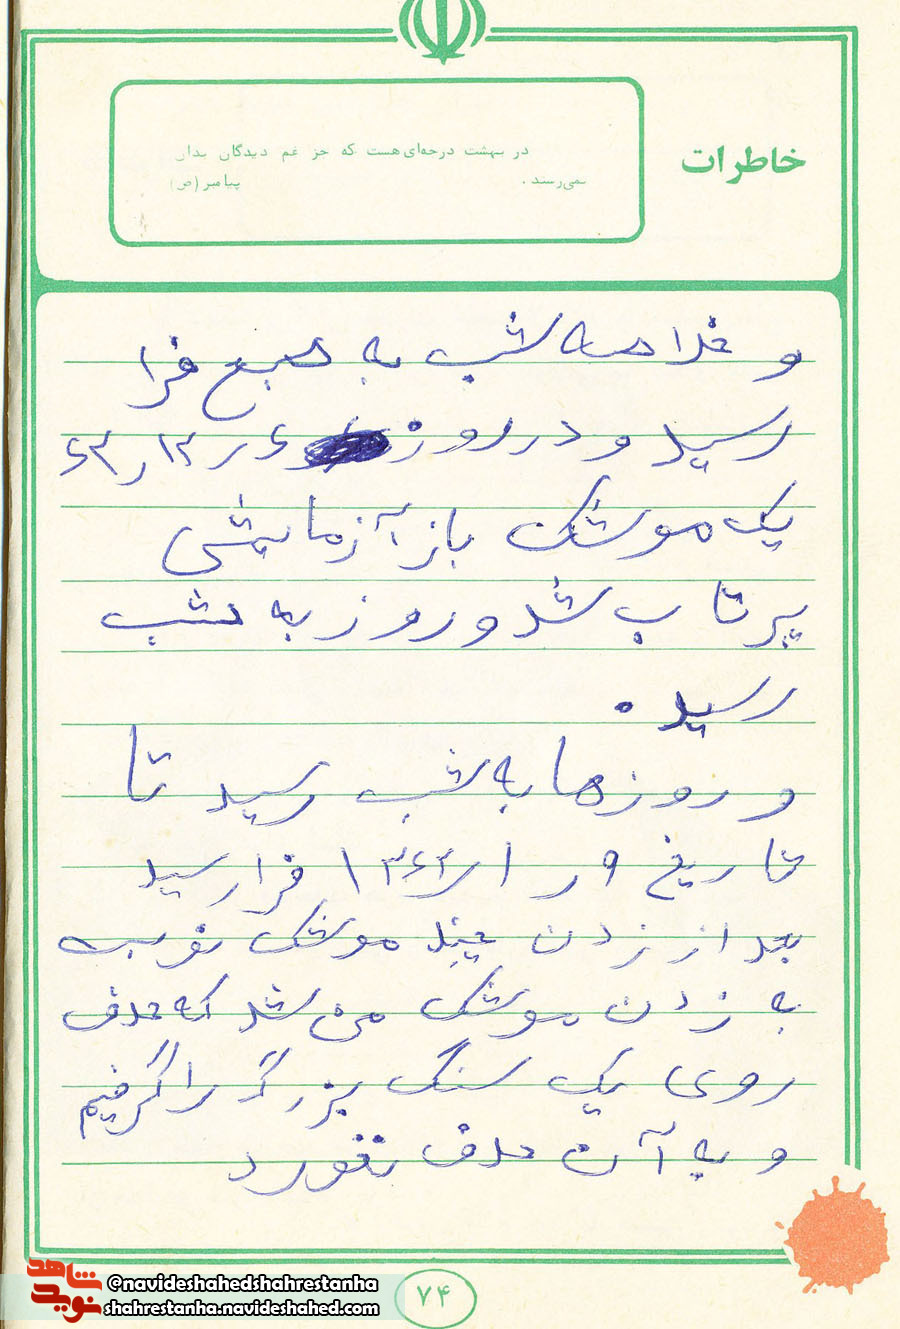 خاطرات
در بهشت درجه‌ای هست که جز غم دیدگان بدان
نمی‌رسند. پیامبر (ص)
و خلاصه شب به صبع فرا
رسید و در روز ۶ر۱۲ر۶۳
یک موشک باز آزمایشی
پرتاب شد و روز به شب
رسید.
و روزها به شب رسید تا
تاریخ ۹ر۱ر۱۳۶۴ فرا رسید
بعد از زدن چند موشک نوبت
به زدن موشک من شد که هدف
روی یک سنگ بزرگ را گرفتیم
و به آن هدف نخورد
شاهد
نوید
@navideshahedshahrestanha
shahrestanha.navideshahed.com
۷۴